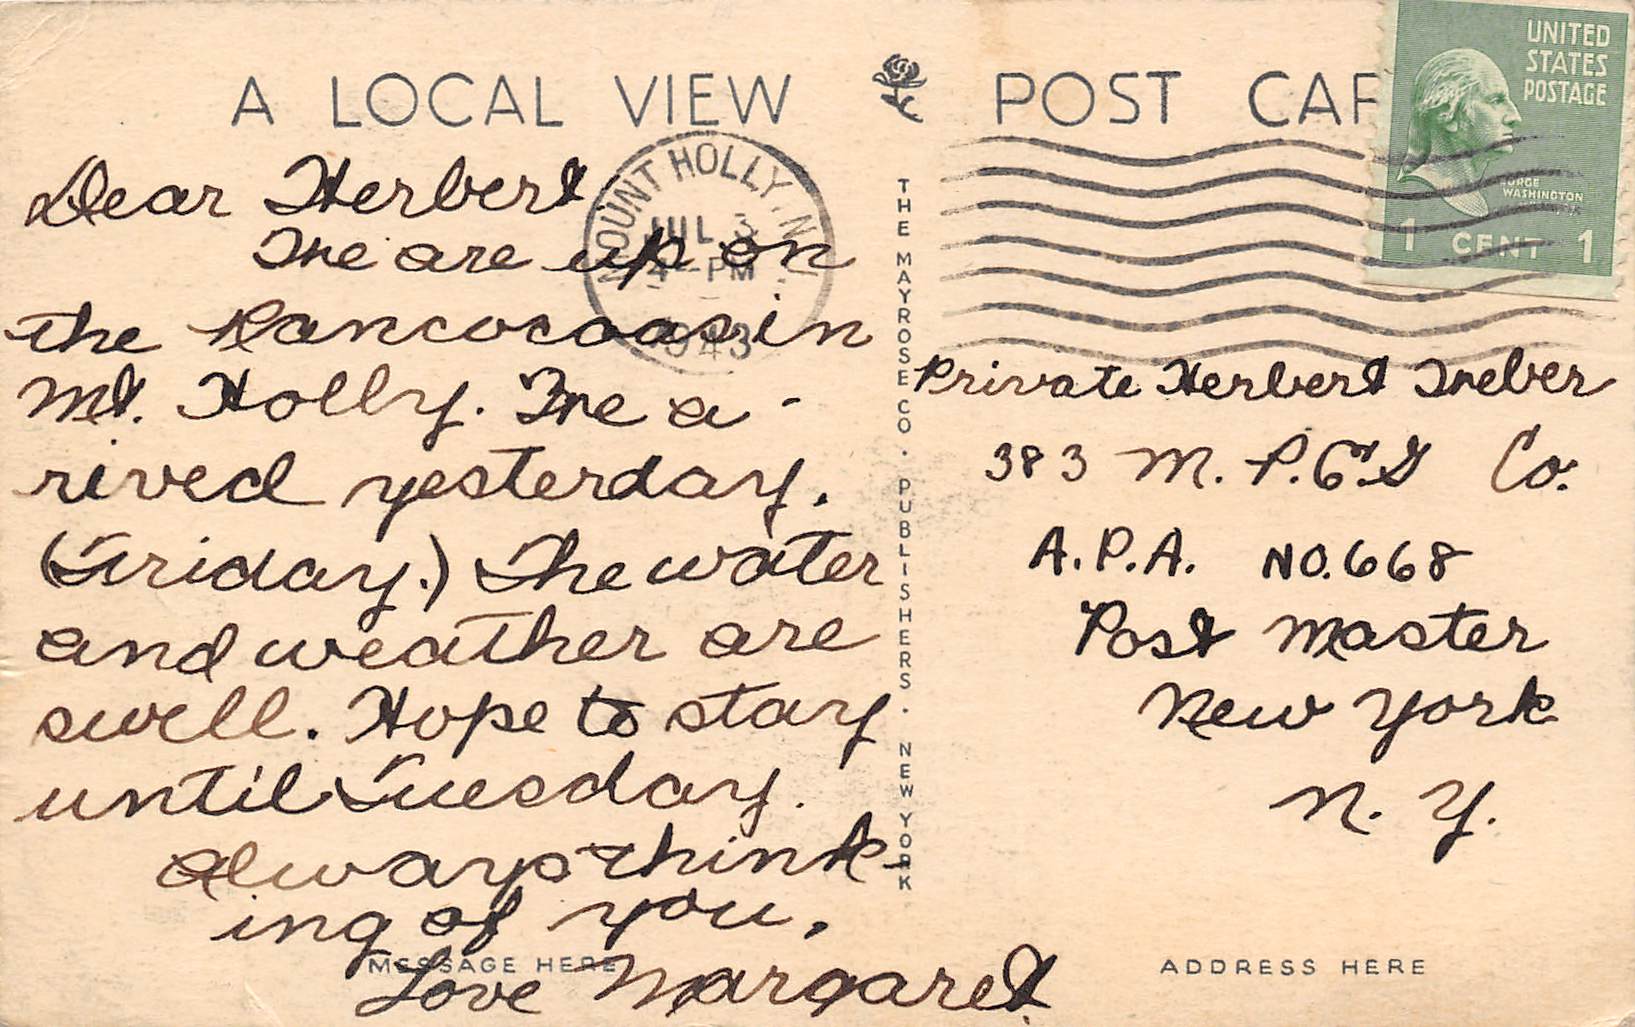 A LOCAL VIEW
POST CAR
UNITED
STATES
POSTAGE
ORGE
WASHINGTON
1 CENT 1
MOUNT HOLLY, N.J.
JUL 3
4 - PM
1943
Dear Herbert
We are up on
the Rancocoas in
Mt. Holly. We a-
rived yesterday.
(Friday.) The water
and weather are
swell. Hope to stay
until Tuesday.
Always think-
ing of you,
Love Margaret
MESSAGE HERE
THE MAYROSE CO. PUBLISHERS. NEW YORK
Private Herbert Weber
383 M. P. E. G Co.
A.P.A. NO. 668
Post Master
New York
N. Y.
ADDRESS HERE